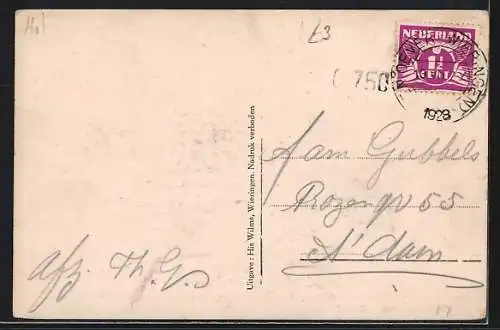 Hol
£3
NEDERLAND
1½
CENT
1928
750
Uitgave: Hin Wilms, Wieringen. Nadruk verboden
Aam Gubbels
Rozengr 55
A'dam
afz. Th. G.